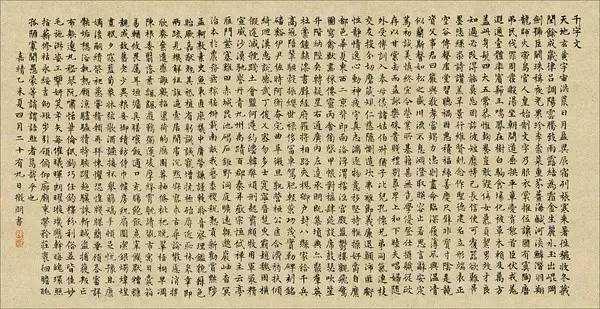 千字文
天地玄黃宇宙洪荒日月盈昃辰宿列張寒來暑往秋收冬藏
閏餘成歲律呂調陽雲騰致雨露結為霜金生麗水玉出崑岡
劍號巨闕珠稱夜光果珍李柰菜重芥薑海鹹河淡鱗潛羽翔
龍師火帝鳥官人皇始制文字乃服衣裳推位讓國有虞陶唐
弔民伐罪周發殷湯坐朝問道垂拱平章愛育黎首臣伏戎羌
遐邇壹體率賓歸王鳴鳳在樹白駒食場化被草木賴及萬方
蓋此身髮四大五常恭惟鞠養豈敢毀傷女慕貞絜男效才良
知過必改得能莫忘罔談彼短靡恃己長信使可覆器欲難量
墨悲絲染詩讚羔羊景行維賢克念作聖德建名立形端表正
空谷傳聲虛堂習聽禍因惡積福緣善慶尺璧非寶寸陰是競
資父事君曰嚴與敬孝當竭力忠則盡命臨深履薄夙興溫凊
似蘭斯馨如松之盛川流不息淵澄取映容止若思言辭安定
篤初誠美慎終宜令榮業所基籍甚無竟學優登仕攝職從政
存以甘棠去而益詠樂殊貴賤禮別尊卑上和下睦夫唱婦隨
外受傅訓入奉母儀諸姑伯叔猶子比兒孔懷兄弟同氣連枝
交友投分切磨箴規仁慈隱惻造次弗離節義廉退顛沛匪虧
性靜情逸心動神疲守真志滿逐物意移堅持雅操好爵自縻
都邑華夏東西二京背邙面洛浮渭據涇宮殿盤鬱樓觀飛驚
圖寫禽獸畫彩仙靈丙舍傍啟甲帳對楹肆筵設席鼓瑟吹笙
升階納陛弁轉疑星右通廣內左達承明既集墳典亦聚群英
杜稾鍾隸漆書壁經府羅將相路俠槐卿戶封八縣家給千兵
高冠陪輦驅轂振纓世祿侈富車駕肥輕策功茂實勒碑刻銘
磻溪伊尹佐時阿衡奄宅曲阜微旦孰營桓公匡合濟弱扶傾
綺迴漢惠說感武丁俊乂密勿多士寔寧晉楚更霸趙魏困橫
假途滅虢踐土會盟何遵約法韓弊煩刑起翦頗牧用軍最精
宣威沙漠馳譽丹青九州禹跡百郡秦并嶽宗恒岱禪主云亭
雁門紫塞雞田赤城昆池碣石鉅野洞庭曠遠綿邈巖岫杳冥
治本於農務茲稼穡俶載南畝我藝黍稷稅熟貢新勸賞黜陟
孟軻敦素史魚秉直庶幾中庸勞謙謹敕聆音察理鑑貌辨色
貽厥嘉猷勉其祗植省躬譏誡寵增抗極殆辱近恥林皋幸即
兩疏見機解組誰逼索居閒處沉默寂寥求古尋論散慮逍遙
欣奏累遣慼謝歡招渠荷的歷園莽抽條枇杷晚翠梧桐早凋
陳根委翳落葉飄颻遊鵾獨運凌摩絳霄耽讀翫市寓目囊箱
易輶攸畏屬耳垣牆具膳餐飯適口充腸飽飫烹宰飢厭糟糠
親戚故舊老少異糧妾御績紡侍巾帷房紈扇圓潔銀燭煒煌
晝眠夕寐藍筍象床弦歌酒讌接杯舉觴矯手頓足悅豫且康
嫡後嗣續祭祀烝嘗稽顙再拜悚懼恐惶牋牒簡要顧答審詳
骸垢想浴執熱願涼驢騾犢特駭躍超驤誅斬賊盜捕獲叛亡
布射遼丸嵇琴阮嘯恬筆倫紙鈞巧任釣釋紛利俗並皆佳妙
毛施淑姿工顰妍笑年矢每催曦暉朗曜璇璣懸斡晦魄環照
指薪修祜永綏吉劭矩步引領俯仰廊廟束帶矜莊徘徊瞻眺
孤陋寡聞愚蒙等誚謂語助者焉哉乎也
嘉靖乙未夏四月二十有九日徵明書